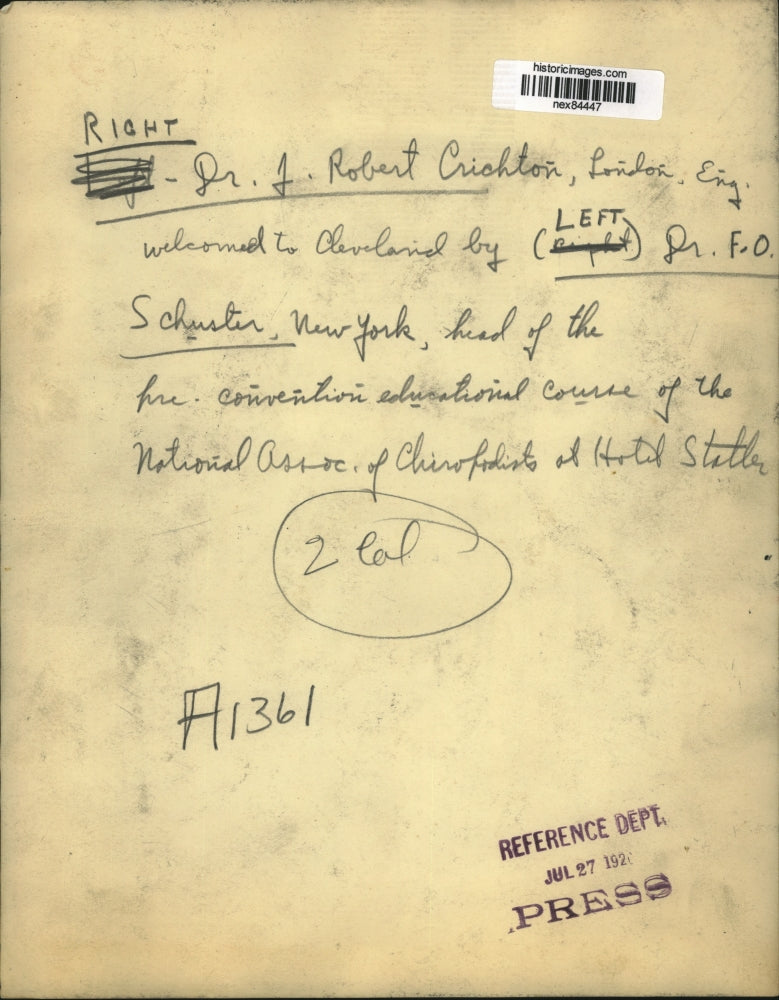 historicimages.com
nex84447
RIGHT
- Dr. J. Robert Crichton, London, Eng.
LEFT
welcomed to Cleveland by (Right) Dr. F.O.
Schuster, New York, head of the
pre-convention educational course of the
National Assoc. of Chiropodists at Hotel Statler
2 Col
A1361
REFERENCE DEPT.
JUL 27 192
PRESS